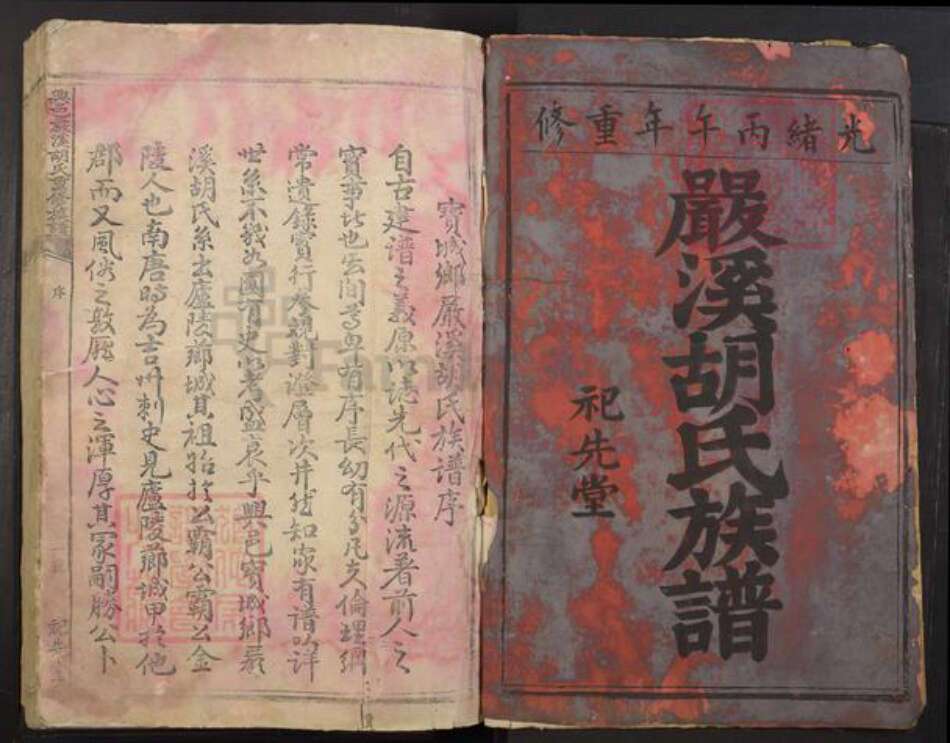 光緒丙午年重修
嚴溪胡氏族譜
祀先堂
寶城鄉嚴溪胡氏族譜序
自古建譜之義原以誌先代之源流著前人之
實事比也云間尊卑有序長幼有分凡夫倫理綱
常遺錄實行參觀對證層次井然知家有譜以詳
世系不幾如國有史以考盛衰乎興邑寶城鄉嚴
溪胡氏系出廬陵薌城其祖始於公霸公霸公金
陵人也南唐時為吉州刺史見廬陵薌城甲於他
郡而又風俗之敦龎人心之渾厚其冢嗣勝公卜
興邑嚴溪胡氏重修族譜
序
祀先堂